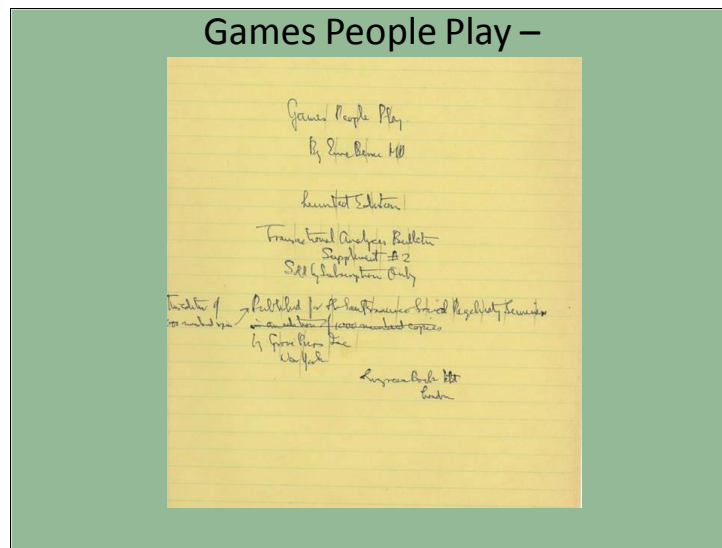 Games People Play –
Games People Play
By Eric Berne MD
Limited Edition
Transactional Analysis Bulletin
Supplement #2
Sold by Subscription Only
Published for the San Francisco Social Psychiatry Seminars
in an edition of 1000 numbered copies
by Grove Press Inc
New York
London